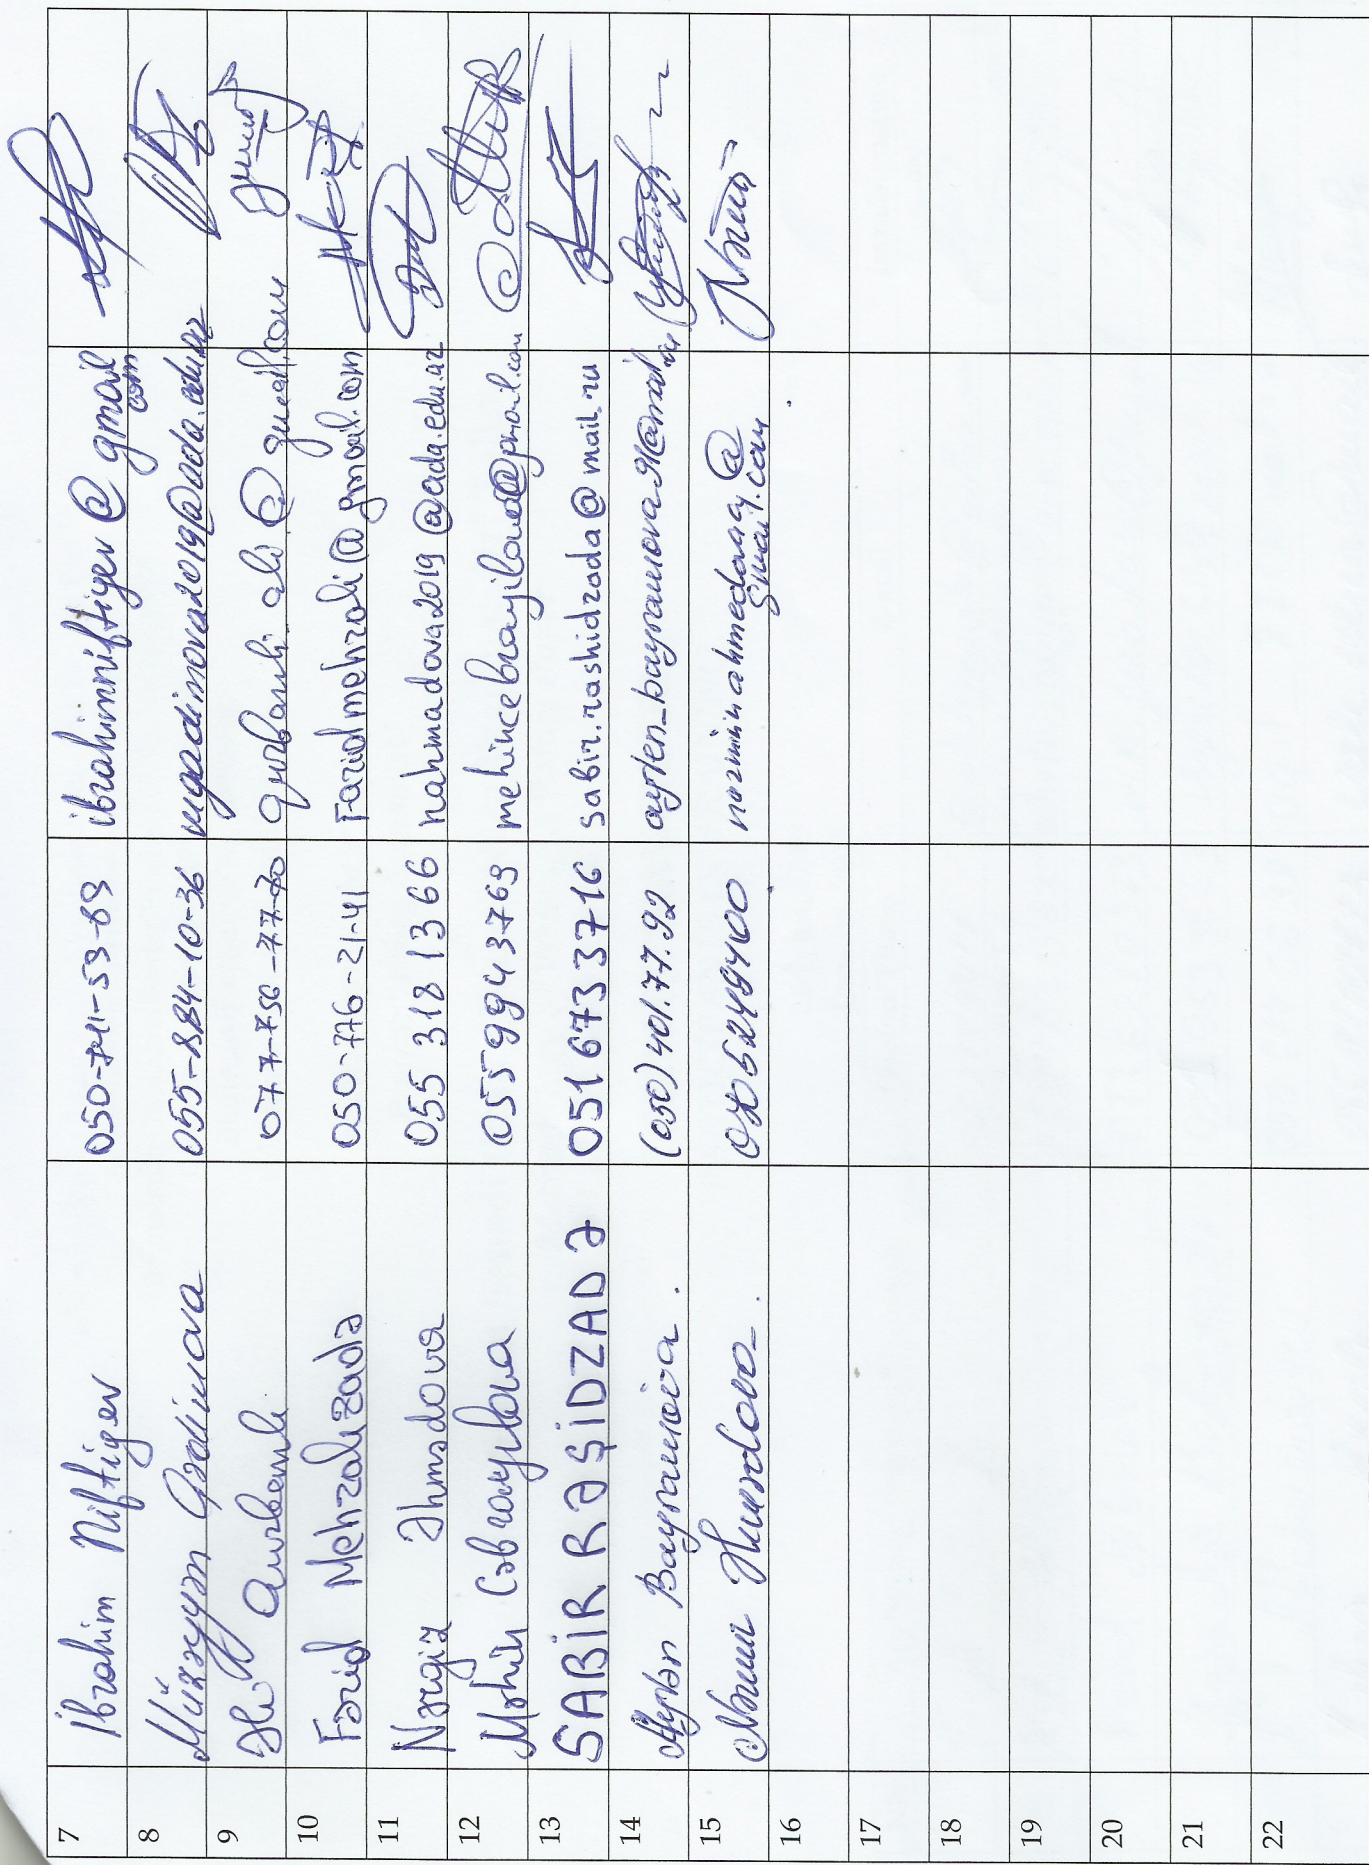 7 İbrahim Niftiyev 050-741-53-89 ibrahimniftiyev@gmail.com
8 Müzəyyəm Qədimova 055-884-10-36 mqadimova2019@ada.edu.az
9 Əli Qurbanlı 077-756-77-70 qurbanli.ali@gmail.com
10 Fərid Mehrəlizadə 050-776-21-41 Faridmehrali@gmail.com
11 Nərgiz Əhmədova 055 318 1366 nahmadova2019@ada.edu.az
12 Məhin Cəbrayılova 0559943769 mehincebrayilova@gmail.com
13 SABİR RƏŞİDZADƏ 0516733716 sabir.rashidzada@mail.ru
14 Aytən Bayramova. (050)401.77.92 ayten_bayramova91@mail.ru
15 Nərmin Əhmədova. 0706249400 narminahmedova9@
gmail.com
16
17
18
19
20
21
22